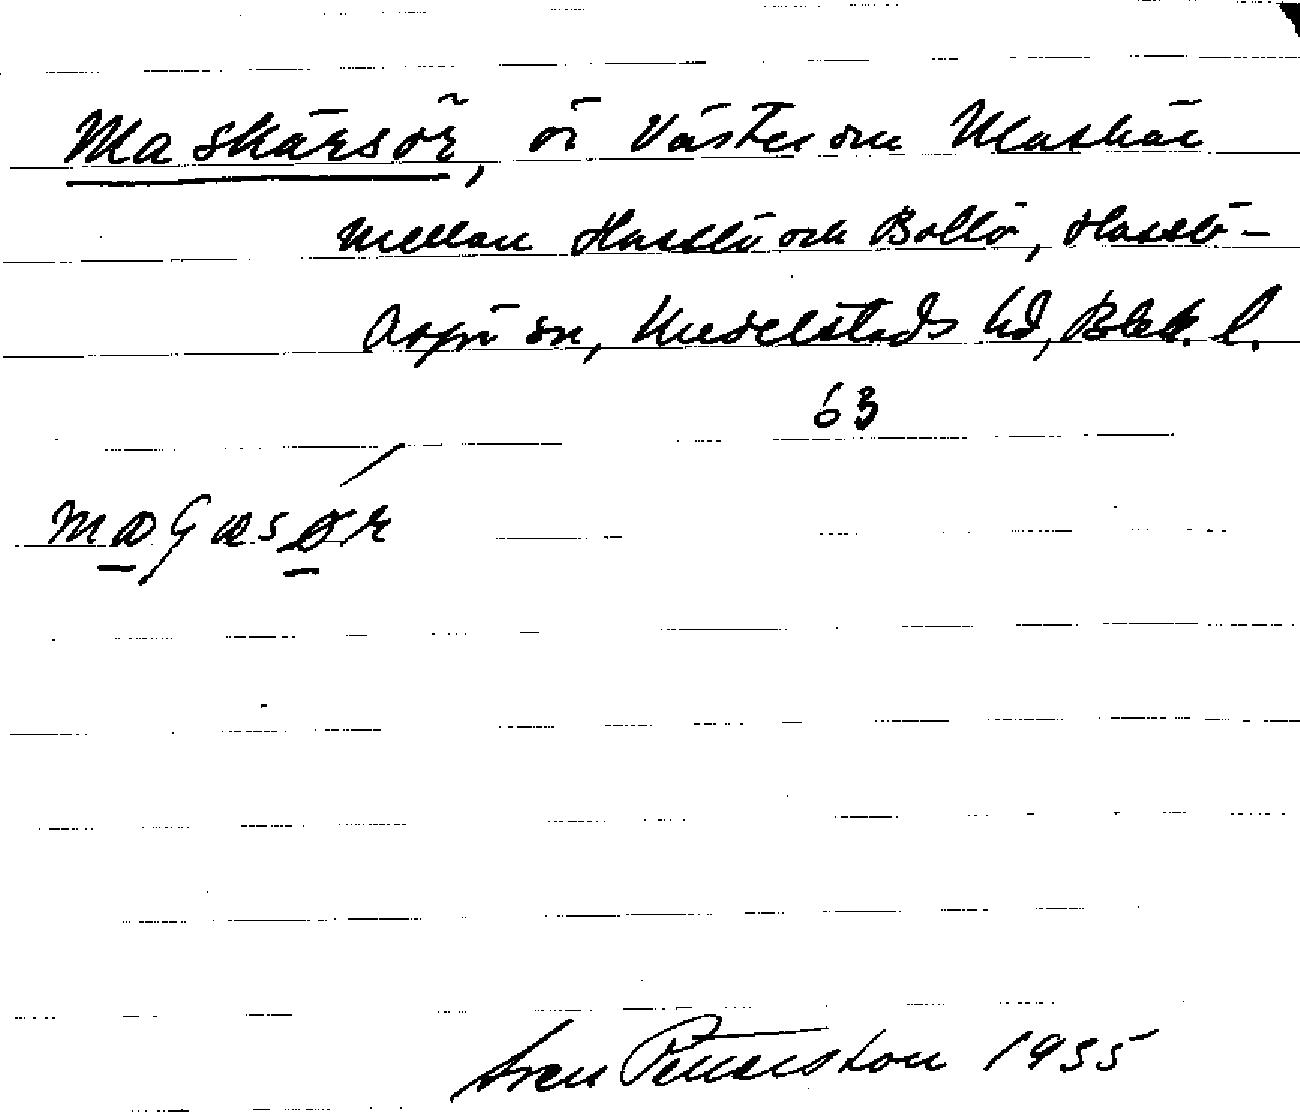 Maskärsör, ö väster om Maskär
mellan Hasslö och Bollö, Hasslö-
Aspö sn, Medelstads hd, Blek. l.
63
Sven Pettersson 1955